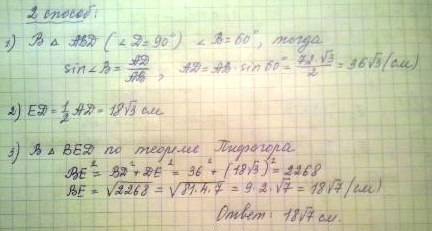 2 способ:
1) В △ ABD (∠D=90°) ∠B=60°, тогда
sin∠B = AD/AB, AD=AB·sin60° = 72·√3/2 = 36√3 (см)
2) ED = 1/2 AD = 18√3 см
3) В △ BED по теореме Пифагора
BE² = BD² + DE² = 36² + (18√3)² = 2268
BE = √2268 = √81·4·7 = 9·2·√7 = 18√7 (см)
Ответ: 18√7 см.